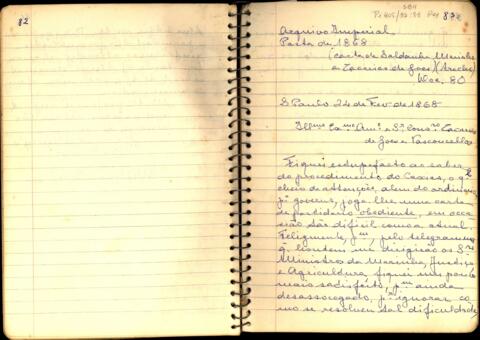 82
SBH
Pi 405/92.59 Pag 83
Arquivo Imperial
Pasta de 1868
(carta de Saldanha Marinho
a Zacarias de Goes)
Doc. 80
S Paulo 24 de Fev. de 1868
Illmo Exmo Amo e Sr Consro Zacarias
de Goes e Vasconcellos
Fiquei estupefacto ao saber
do procedimento do Caxias, o ql
cheio de attenções, alem do ordinario,
pr governo, joga-lhe uma carta
de partidario obediente, em occa
sião tão dificil como a actual.
Felizmente, pm, pelo telegramma
q. hontem me dirigirão os Srs
Ministros da Marinha, Justiça
e Agricultura fiquei um pouco
mais satisfeito, pm ainda
desassocegado, pr ignorar co
mo se resolveu tal dificuldade,